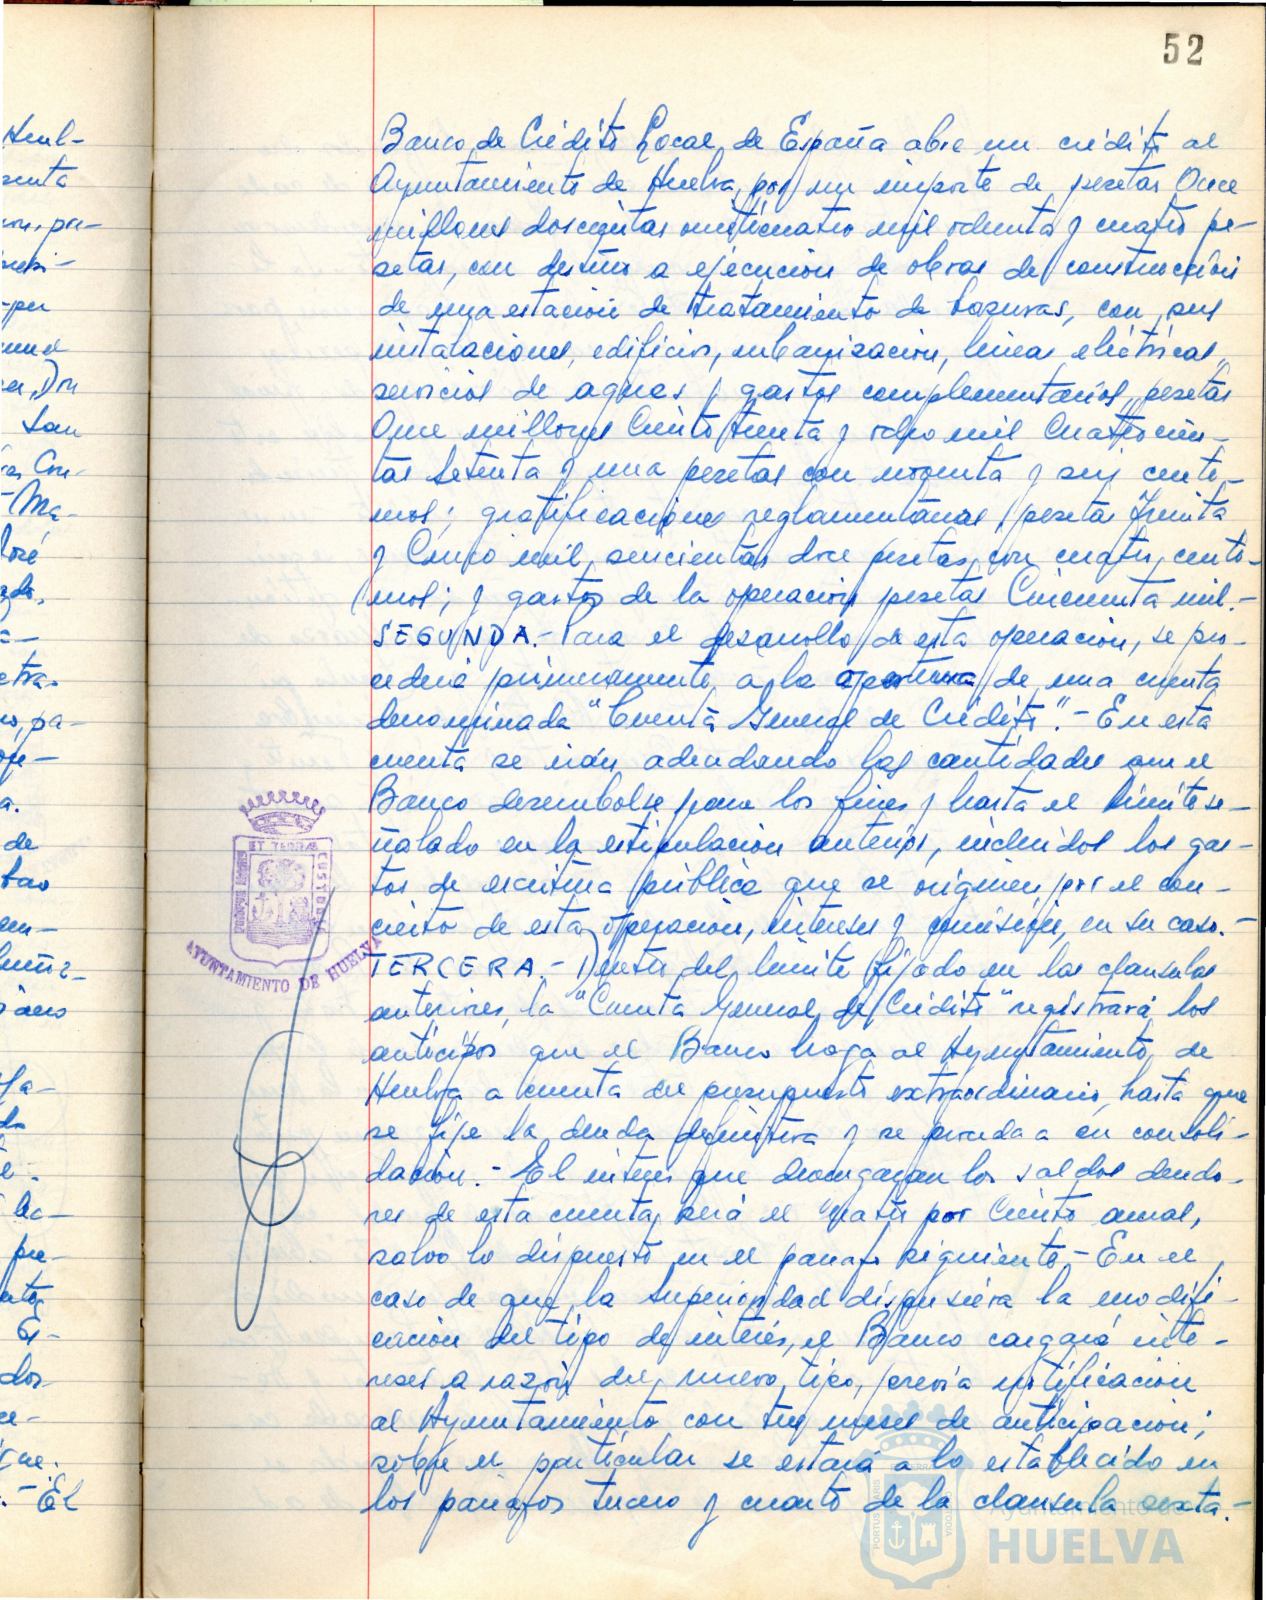 52
Banco de Crédito Local de España abre un crédito al
Ayuntamiento de Huelva, por un importe de pesetas Once
millones doscientas veinticuatro mil ochenta y cuatro pe-
setas, con destino a ejecución de obras de construcción
de una estación de tratamiento de basuras, con sus
instalaciones, edificios, urbanización, líneas eléctricas,
servicios de aguas y gastos complementarios, pesetas
Once millones Ciento treinta y ocho mil Cuatrocien-
tas Setenta y una pesetas con noventa y seis cénti-
mos; gratificaciones reglamentarias, pesetas Treinta
y Cinco mil, seiscientas doce pesetas, con cuatro, cénti-
mos; y gastos de la operación pesetas Cincuenta mil.-
SEGUNDA.- Para el desarrollo de esta operación, se pro-
cederá primeramente, a la apertura de una cuenta
denominada "Cuenta General de Crédito".- En esta
cuenta se irán adeudando las cantidades que el
Banco desembolse para los fines y hasta el límite se-
ñalado en la estipulación anterior, incluidos los gas-
tos de escritura pública que se originen por el con-
cierto de esta operación, intereses y comisión, en su caso.-
TERCERA.- Dentro del límite fijado en las clausulas
anteriores, la "Cuenta General de Crédito" registrará los
anticipos que el Banco haga al Ayuntamiento de
Huelva a cuenta del presupuesto extraordinario, hasta que
se fije la deuda definitiva y se proceda a su consoli-
dación.- El interés que devengaran los saldos deudo-
res de esta cuenta, será el cuatro por Ciento anual,
salvo lo dispuesto en el parrafo siguiente.- En el
caso de que la Superioridad dispusiera la modifi-
cación del tipo de interés, el Banco cargará inte-
reses a razón del nuevo tipo, previa notificación
al Ayuntamiento con tres meses de anticipación;
sobre el particular se estará a lo establecido en
los parrafos tercero y cuarto de la clausula sexta.-
AYUNTAMIENTO DE HUELVA
Ayuntamiento de
HUELVA